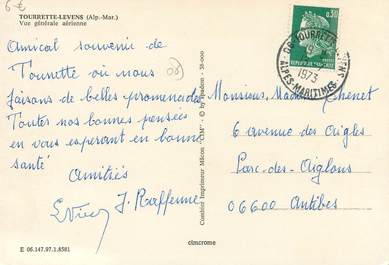 6€
TOURRETTE-LEVENS (Alp.-Mar.)
Vue générale aérienne
Amical souvenir de
Tourette où nous
faisons de belles promenades
Toutes nos bonnes pensées
en vous espérant en bonne
santé
Amitiés
J. Raffenne
E 06.147.97.1.8581
Combier Imprimeur Mâcon "CIM" © by Spadem - 38-000
cimcrome
0,30
06 TOURRETTE
19
1973
ALPES-MARITIMES
Monsieur, Madame Chenet
6 avenue des Aigles
Parc-des-Aiglons
06600 Antibes